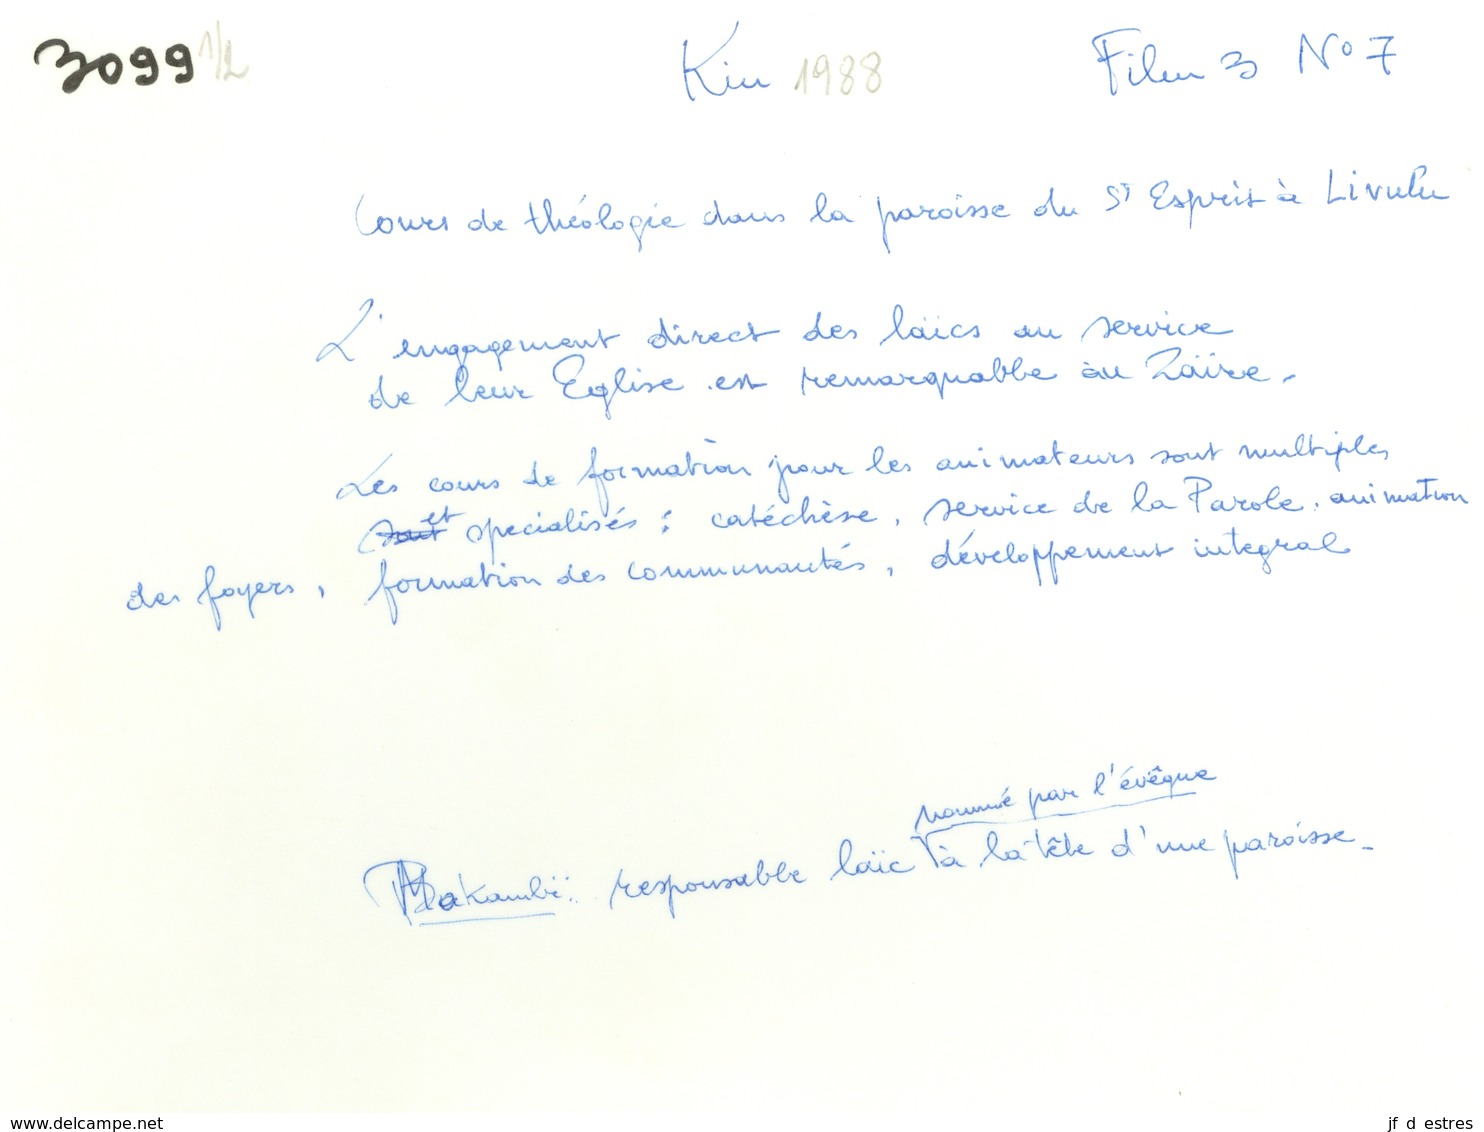 3099 1/2 Kin 1988 Film 3 No 7
Cours de théologie dans la paroisse du St Esprit à Livulu
L'engagement direct des laïcs au service
de leur Eglise est remarquable au Zaïre.
Les cours de formation pour les animateurs sont multiples
et
sont spécialisés : catéchèse, service de la Parole, animation
des foyers, formation des communautés, développement integral
nommé par l'évêque
Bakambi : responsable laïc à la tête d'une paroisse.
www.delcampe.net
jf d estres